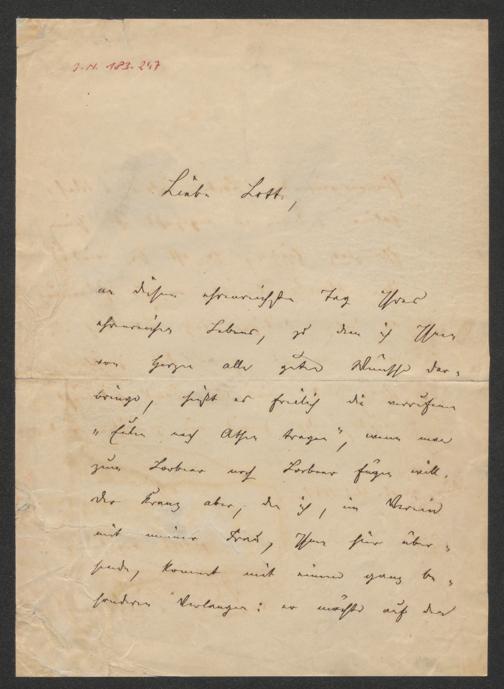 J.N. 183.247
Liebe Lotte,
an diesem ehrenreichsten Tag Ihres
ehrenreichen Lebens, zu dem ich Ihnen
von Herzen alle guten Wünsche dar-
bringe, heißt es freilich die verrufenen
"Eulen nach Athen tragen", wenn man
zum Lorbeer noch Lorbeer fügen will.
Der Kranz aber, den ich, im Verein
mit meiner Frau, Ihnen hier über-
sende, kommt mit einem ganz be-
sonderen Verlangen: er möchte auf den